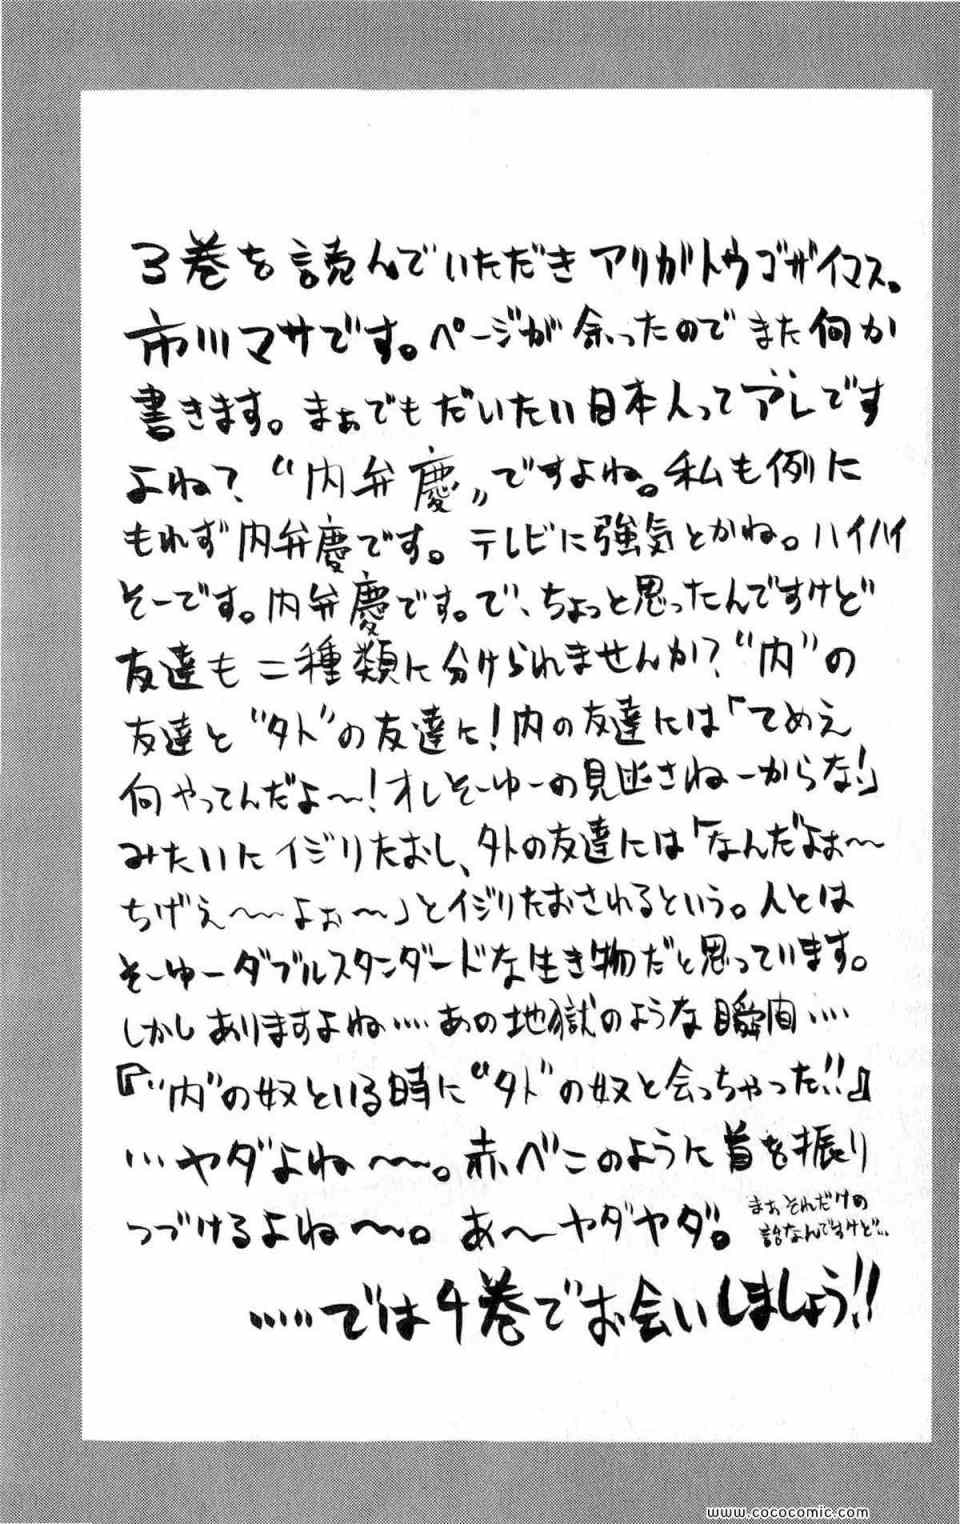 3巻を読んでいただきアリガトウゴザイマス。
市川マサです。ページが余ったのでまた何か
書きます。まぁでもだいたい日本人ってアレです
よね?“内弁慶”ですよね。私も例に
もれず内弁慶です。テレビに強気とかね。ハイハイ
そーです。内弁慶です。で、ちょっと思ったんですけど
友達も二種類に分けられませんか?“内”の
友達と“外”の友達に!内の友達には「てめえ
何やってんだよ〜!オレそーゆーの見逃さねーからな!」
みたいにイジりたおし、外の友達には「なんだよぉ〜
ちげぇ〜〜よぉ〜」とイジりたおされるという。人とは
そーゆーダブルスタンダードな生き物だと思っています。
しかしありますよね‥‥あの地獄のような瞬間‥‥
『“内”の奴といる時に“外”の奴と会っちゃった!!』
…ヤダよね〜〜。赤べこのように首を振り
つづけるよね〜〜。あ〜ヤダヤダ。
まぁそれだけの
話なんですけど…
……では4巻でお会いしましょう!!
www.cococomic.com